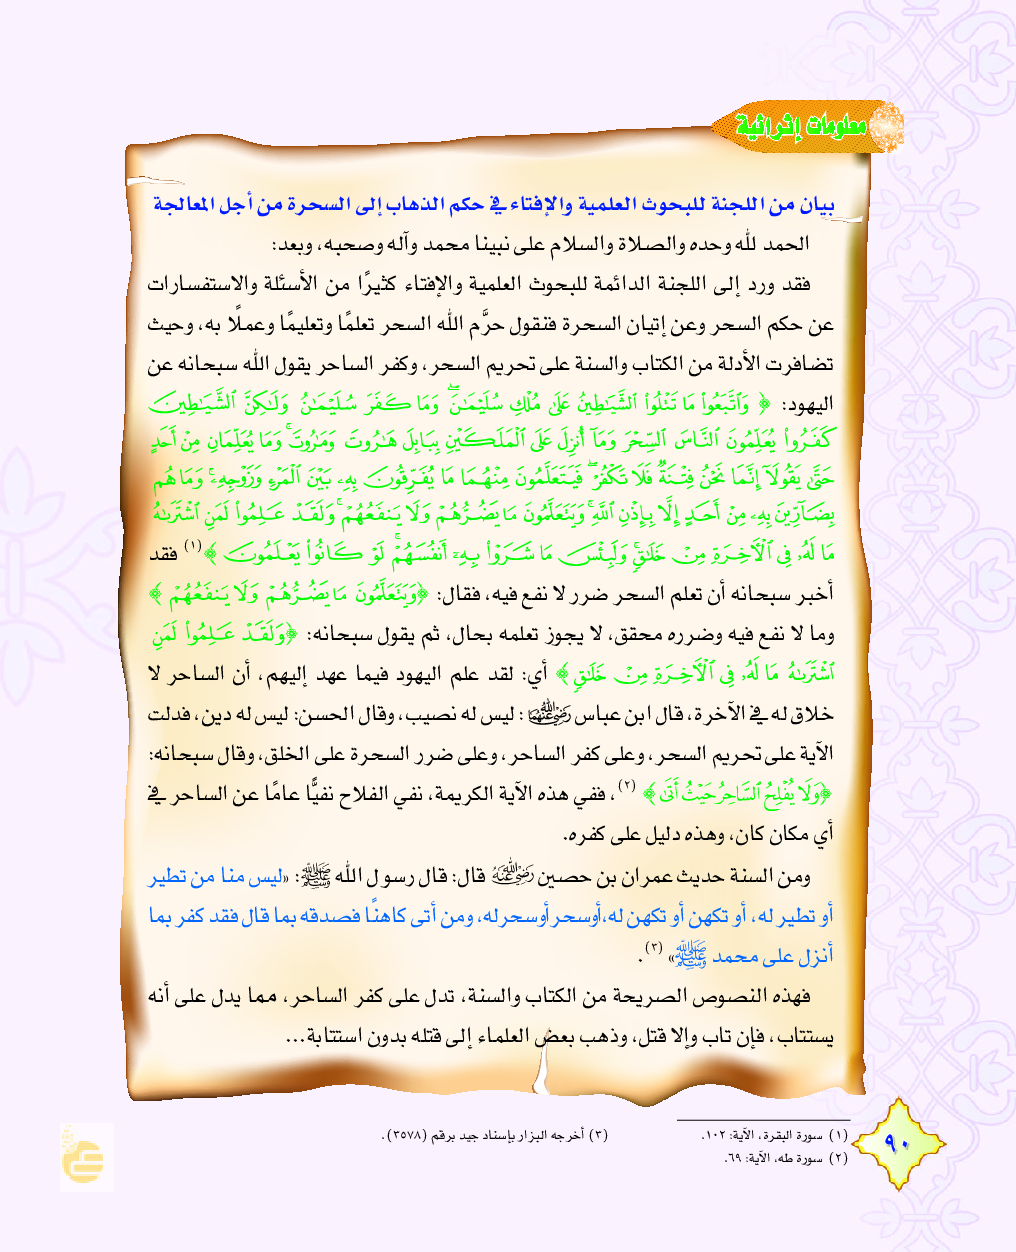 معلومات إثرائية
بيان من اللجنة للبحوث العلمية والإفتاء في حكم الذهاب إلى السحرة من أجل المعالجة
الحمد لله وحده والصلاة والسلام على نبينا محمد وآله وصحبه، وبعد:
فقد ورد إلى اللجنة الدائمة للبحوث العلمية والإفتاء كثيرًا من الأسئلة والاستفسارات
عن حكم السحر وعن إتيان السحرة فنقول حرَّم الله السحر تعلمًا وتعليمًا وعملًا به، وحيث
تضافرت الأدلة من الكتاب والسنة على تحريم السحر، وكفر الساحر يقول الله سبحانه عن
اليهود: ﴿ وَٱتَّبَعُواْ مَا تَتْلُواْ ٱلشَّيَٰطِينُ عَلَىٰ مُلْكِ سُلَيْمَٰنَۖ وَمَا كَفَرَ سُلَيْمَٰنُ وَلَٰكِنَّ ٱلشَّيَٰطِينَ
كَفَرُواْ يُعَلِّمُونَ ٱلنَّاسَ ٱلسِّحْرَ وَمَآ أُنزِلَ عَلَى ٱلْمَلَكَيْنِ بِبَابِلَ هَٰرُوتَ وَمَٰرُوتَۚ وَمَا يُعَلِّمَانِ مِنْ أَحَدٍ
حَتَّىٰ يَقُولَآ إِنَّمَا نَحْنُ فِتْنَةٌ فَلَا تَكْفُرْۖ فَيَتَعَلَّمُونَ مِنْهُمَا مَا يُفَرِّقُونَ بِهِۦ بَيْنَ ٱلْمَرْءِ وَزَوْجِهِۦۚ وَمَا هُم
بِضَآرِّينَ بِهِۦ مِنْ أَحَدٍ إِلَّا بِإِذْنِ ٱللَّهِۚ وَيَتَعَلَّمُونَ مَا يَضُرُّهُمْ وَلَا يَنفَعُهُمْۚ وَلَقَدْ عَلِمُواْ لَمَنِ ٱشْتَرَىٰهُ
مَا لَهُۥ فِى ٱلْأَخِرَةِ مِنْ خَلَٰقٍۚ وَلَبِئْسَ مَا شَرَوْاْ بِهِۦٓ أَنفُسَهُمْۚ لَوْ كَانُواْ يَعْلَمُونَ ﴾(١) فقد
أخبر سبحانه أن تعلم السحر ضرر لا نفع فيه، فقال: ﴿وَيَتَعَلَّمُونَ مَا يَضُرُّهُمْ وَلَا يَنفَعُهُمْ ﴾
وما لا نفع فيه وضرره محقق، لا يجوز تعلمه بحال، ثم يقول سبحانه: ﴿وَلَقَدْ عَلِمُواْ لَمَنِ
ٱشْتَرَىٰهُ مَا لَهُۥ فِى ٱلْأَخِرَةِ مِنْ خَلَٰقٍ﴾ أي: لقد علم اليهود فيما عهد إليهم، أن الساحر لا
خلاق له في الآخرة، قال ابن عباس رضي الله عنهما: ليس له نصيب، وقال الحسن: ليس له دين، فدلت
الآية على تحريم السحر، وعلى كفر الساحر، وعلى ضرر السحرة على الخلق، وقال سبحانه:
﴿وَلَا يُفْلِحُ ٱلسَّاحِرُ حَيْثُ أَتَىٰ﴾ (٢)، ففي هذه الآية الكريمة، نفي الفلاح نفيًّا عامًا عن الساحر في
أي مكان كان، وهذه دليل على كفره.
ومن السنة حديث عمران بن حصين رضي الله عنه قال: قال رسول الله ﷺ: «ليس منا من تطير
أو تطير له، أو تكهن أو تكهن له،أوسحر أوسحرله، ومن أتى كاهنًا فصدقه بما قال فقد كفر بما
أنزل على محمد ﷺ» (٣).
فهذه النصوص الصريحة من الكتاب والسنة، تدل على كفر الساحر، مما يدل على أنه
يستتاب، فإن تاب وإلا قتل، وذهب بعض العلماء إلى قتله بدون استتابة...
(١) سورة البقرة، الآية: ١٠٢.
(٢) سورة طه، الآية: ٦٩.
(٣) أخرجه البزار بإسناد جيد برقم (٣٥٧٨).
٩٠